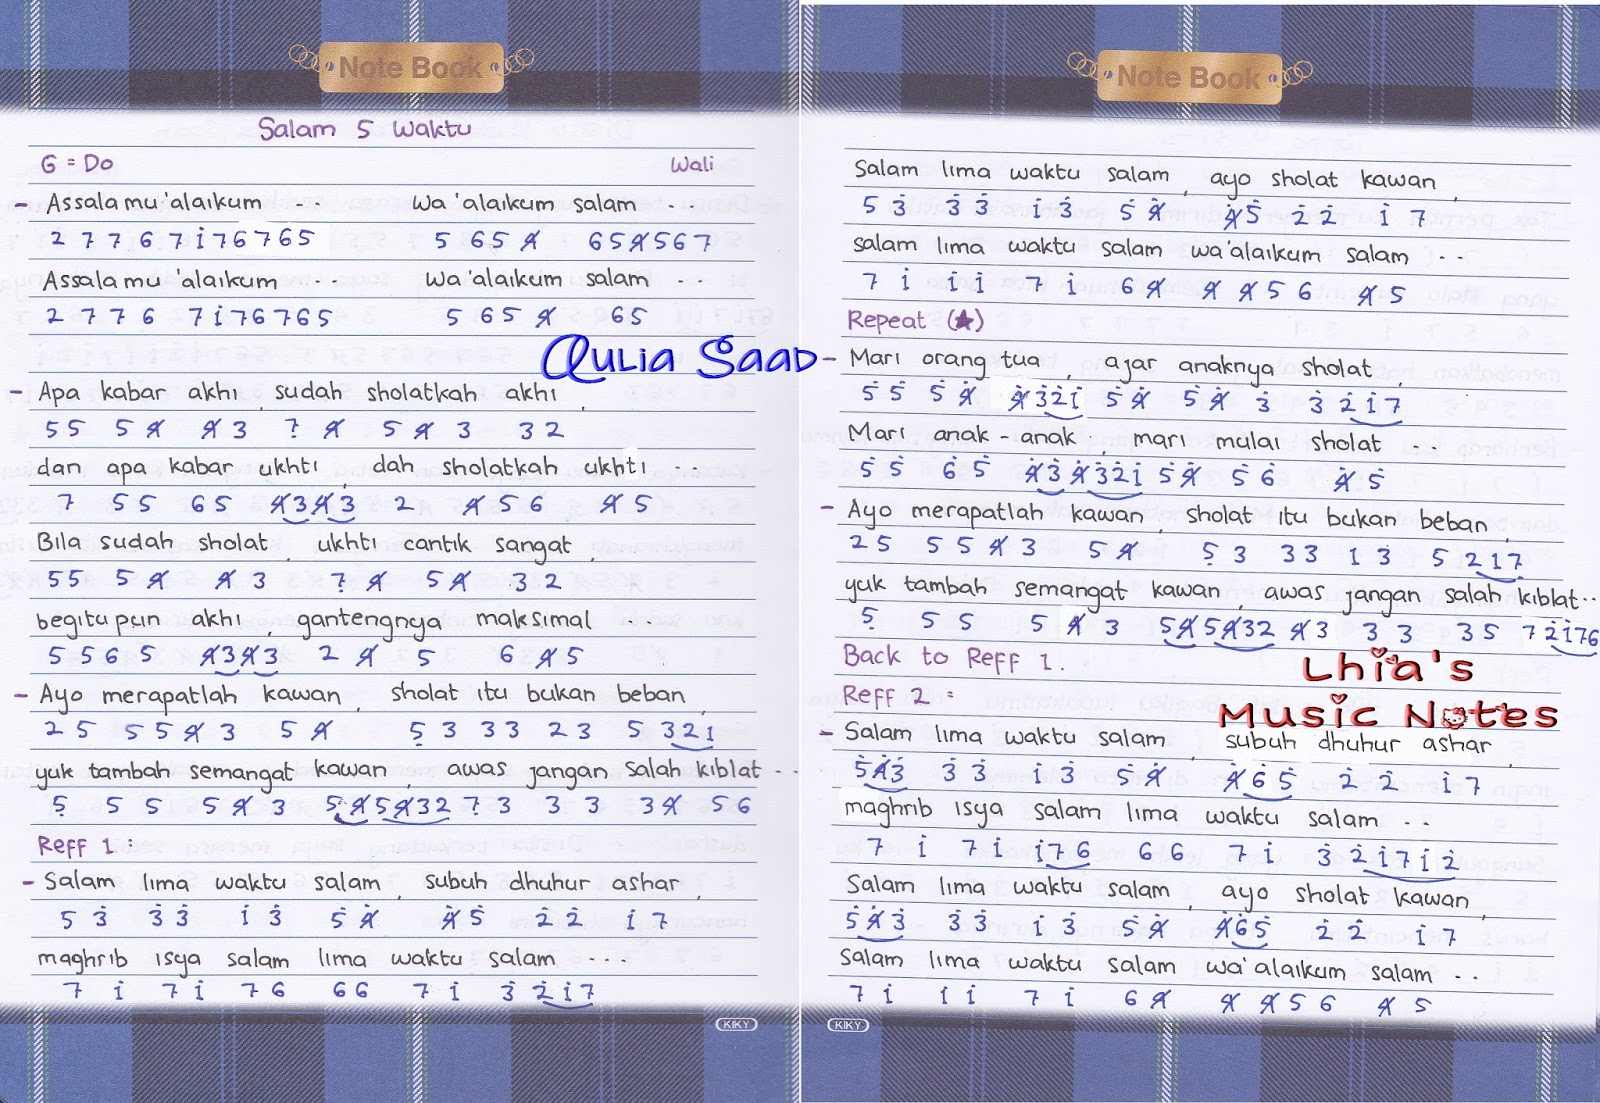 Note Book
Salam 5 Waktu
G = Do Wali
- Assalamu'alaikum ... Wa'alaikum salam ...
2 7 7 6 7 i 7 6 7 6 5 5 6 5 4̸ 6 5 4̸ 5 6 7
Assalamu'alaikum ... Wa'alaikum salam ...
2 7 7 6 7 i 7 6 7 6 5 5 6 5 4̸ 6 5
Qulia Saad
- Apa kabar akhi, sudah sholatkah akhi,
5 5 5 4̸ 4̸ 3 7̣ 4̸ 5 4̸ 3 3 2
dan apa kabar ukhti, dah sholatkah ukhti ...
7 5 5 6 5 4̸ 3 4̸ 3 2 4̸ 5 6 4̸ 5
Bila sudah sholat, ukhti cantik sangat,
5 5 5 4̸ 4̸ 3 7̣ 4̸ 5 4̸ 3 2
begitupun akhi, gantengnya maksimal ...
5 5 6 5 4̸ 3 4̸ 3 2 4̸ 5 6 4̸ 5
- Ayo merapatlah kawan, sholat itu bukan beban,
2 5 5 5 4̸ 3 5 4̸ 5̣ 3 3 3 2 3 5 3 2 1
yuk tambah semangat kawan, awas jangan salah kiblat ...
5̣ 5 5 5 4̸ 3 5 4̸ 5 4̸ 3 2 7̣ 3 3 3 3 4̸ 5 6
Reff 1 :
- Salam lima waktu salam, subuh dhuhur ashar,
5 3̇ 3̇ 3̇ i 3̇ 5̇ 4̸̇ 4̸̇ 5̇ 2̇ 2̇ i 7
maghrib isya salam lima waktu salam ....
7 i 7 i 7 6 6 6 7 i 3̇ 2̇ i 7
KIKY
Note Book
Salam lima waktu salam, ayo sholat kawan,
5 3̇ 3̇ 3̇ i 3̇ 5̇ 4̸̇ 4̸̇ 5̇ 2̇ 2̇ i 7
salam lima waktu salam wa'alaikum salam ..
7 i i i 7 i 6 4̸ 4̸ 4̸ 5 6 4̸ 5
Repeat (★)
- Mari orang tua, ajar anaknya sholat,
5̇ 5̇ 5̇ 4̸̇ 4̸̇ 3̇ 2̇ i 5̇ 4̸̇ 5̇ 4̸̇ 3̇ 3̇ 2̇ i 7
Mari anak-anak, mari mulai sholat ...
5̇ 5̇ 6̇ 5̇ 4̸̇ 3̇ 4̸̇ 3̇ 2̇ i 5̇ 4̸̇ 5̇ 6̇ 4̸̇ 5̇
- Ayo merapatlah kawan sholat itu bukan beban,
2 5 5 5 4̸ 3 5 4̸ 5̣ 3 3 3 1 3 5 2 1 7̣
yuk tambah semangat kawan, awas jangan salah kiblat...
5̣ 5 5 5 4̸ 3 5 4̸ 5 4̸ 3 2 4̸ 3 3 3 3 5 7 2̇ i 7 6
Back to Reff 1.
Lhia's
Music Notes
Reff 2 :
- Salam lima waktu salam, subuh dhuhur ashar,
5̇ 4̸̇ 3̇ 3̇ 3̇ i 3̇ 5̇ 4̸̇ 4̸̇ 6̇ 5̇ 2̇ 2̇ i 7
maghrib isya salam lima waktu salam ...
7 i 7 i i 7 6 6 6 7 i 3̇ 2̇ i 7 i 2̇
Salam lima waktu salam, ayo sholat kawan,
5̇ 4̸̇ 3̇ 3̇ 3̇ i 3̇ 5̇ 4̸̇ 4̸̇ 6̇ 5̇ 2̇ 2̇ i 7
Salam lima waktu salam wa'alaikum salam ..
7 i i i 7 i 6 4̸ 4̸ 4̸ 5 6 4̸ 5
KIKY